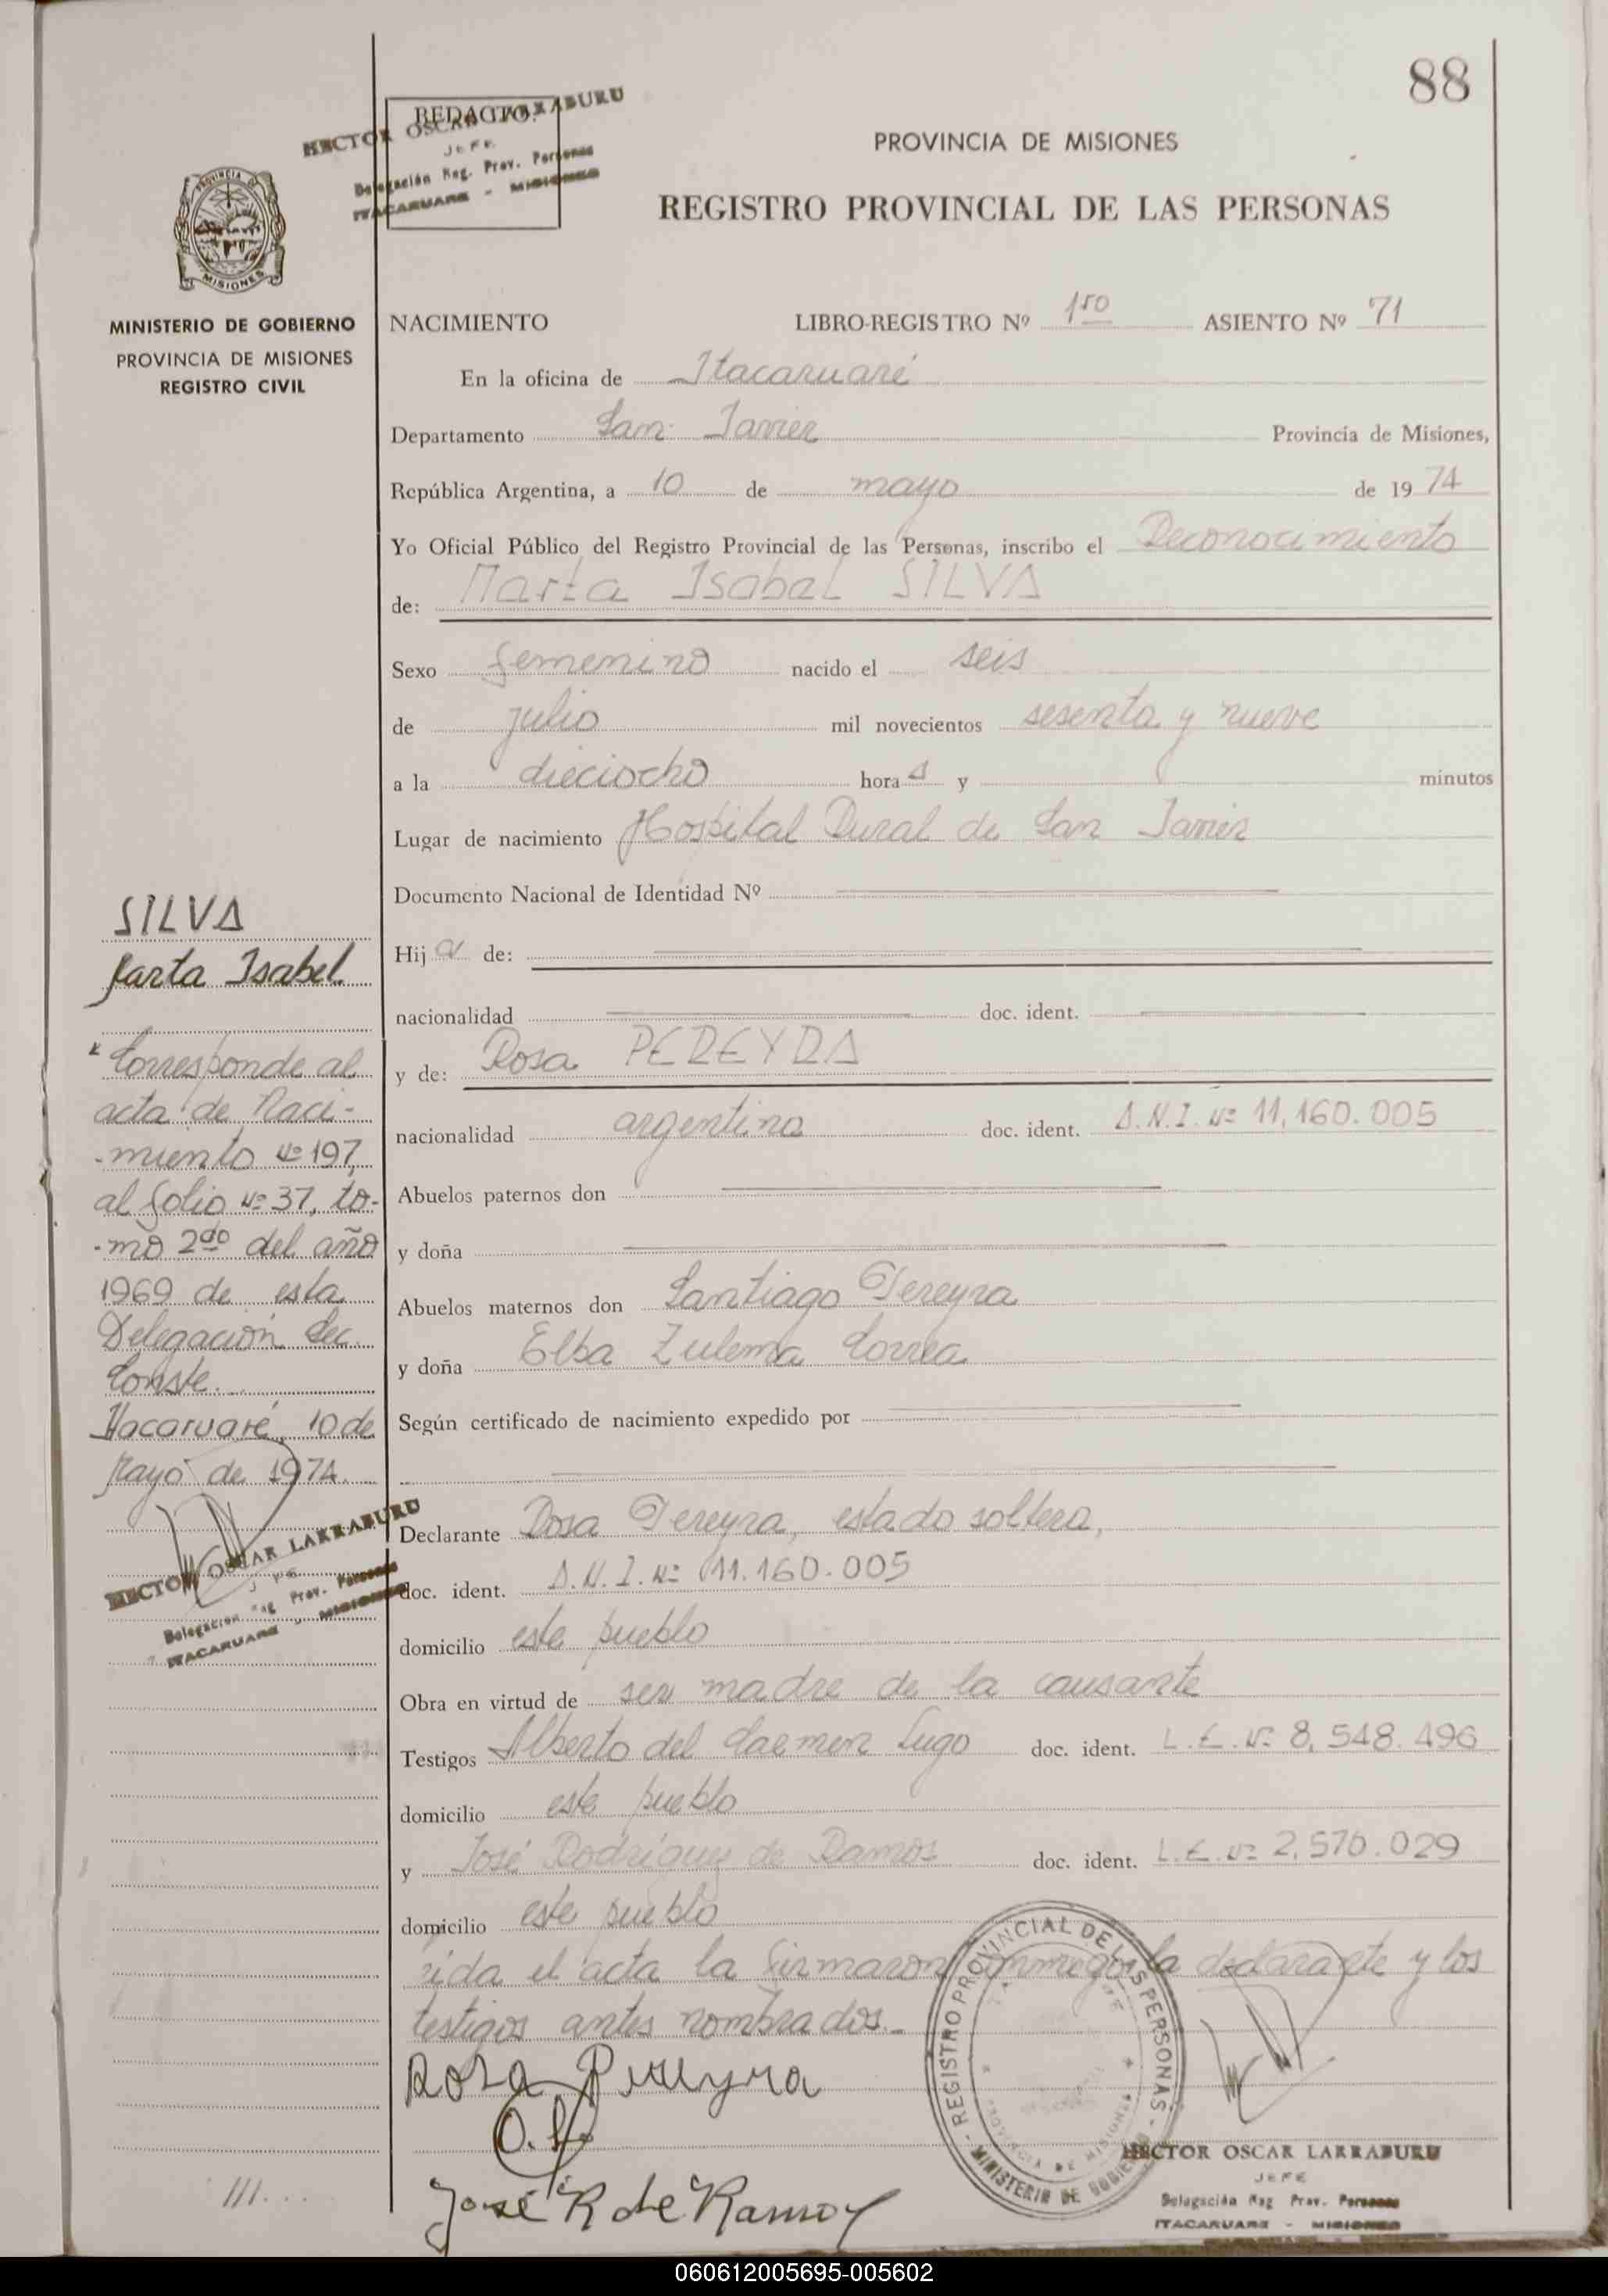 88
REDACTO:
HECTOR OSCAR LARRABURU
JEFE
Delegación Reg. Prov. Personas
ITACARUARE - MISIONES
PROVINCIA DE MISIONES
REGISTRO PROVINCIAL DE LAS PERSONAS
PROVINCIA DE
MISIONES
MINISTERIO DE GOBIERNO
PROVINCIA DE MISIONES
REGISTRO CIVIL
NACIMIENTO LIBRO-REGISTRO Nº 1ro ASIENTO Nº 71
En la oficina de Itacaruaré
Departamento San Javier Provincia de Misiones,
República Argentina, a 10 de mayo de 1974
Yo Oficial Público del Registro Provincial de las Personas, inscribo el Reconocimiento
de: Marta Isabel SILVA
Sexo femenino nacido el seis
de julio mil novecientos sesenta y nueve
a la dieciocho hora s y minutos
Lugar de nacimiento Hospital Rural de San Javier
Documento Nacional de Identidad Nº
Hija de:
nacionalidad doc. ident.
y de: Rosa PEREYRA
nacionalidad argentina doc. ident. D.N.I. Nº 11,160.005
Abuelos paternos don
y doña
Abuelos maternos don Santiago Pereyra
y doña Elba Zulema Correa
Según certificado de nacimiento expedido por
Declarante Rosa Pereyra, estado soltera,
doc. ident. D.N.I. Nº 11.160.005
domicilio este pueblo
Obra en virtud de ser madre de la causante
Testigos Alberto del Carmen Lugo doc. ident. L.E. Nº 8.548.496
domicilio este pueblo
y José Rodriguez de Ramos doc. ident. L.E. Nº 2.570.029
domicilio este pueblo
Leida el acta la firmaron conmigo la declarante y los
testigos antes nombrados.-
Rosa Pereyra
José R de Ramos
REGISTRO PROVINCIAL DE LAS PERSONAS - MINISTERIO DE GOBIERNO -
PROVINCIA DE MISIONES
HECTOR OSCAR LARRABURU
JEFE
Delegación Reg Prov. Personas
ITACARUARE - MISIONES
SILVA
Marta Isabel
Corresponde al
acta de Naci-
-miento Nº 197,
al folio Nº 37, to-
-mo 2do del año
1969 de esta
Delegación Sec.
Conste.
Itacaruaré, 10 de
Mayo de 1974.
HECTOR OSCAR LARRABURU
JEFE
Delegación Reg Prov. Personas
ITACARUARE - MISIONES
///...
060612005695-005602